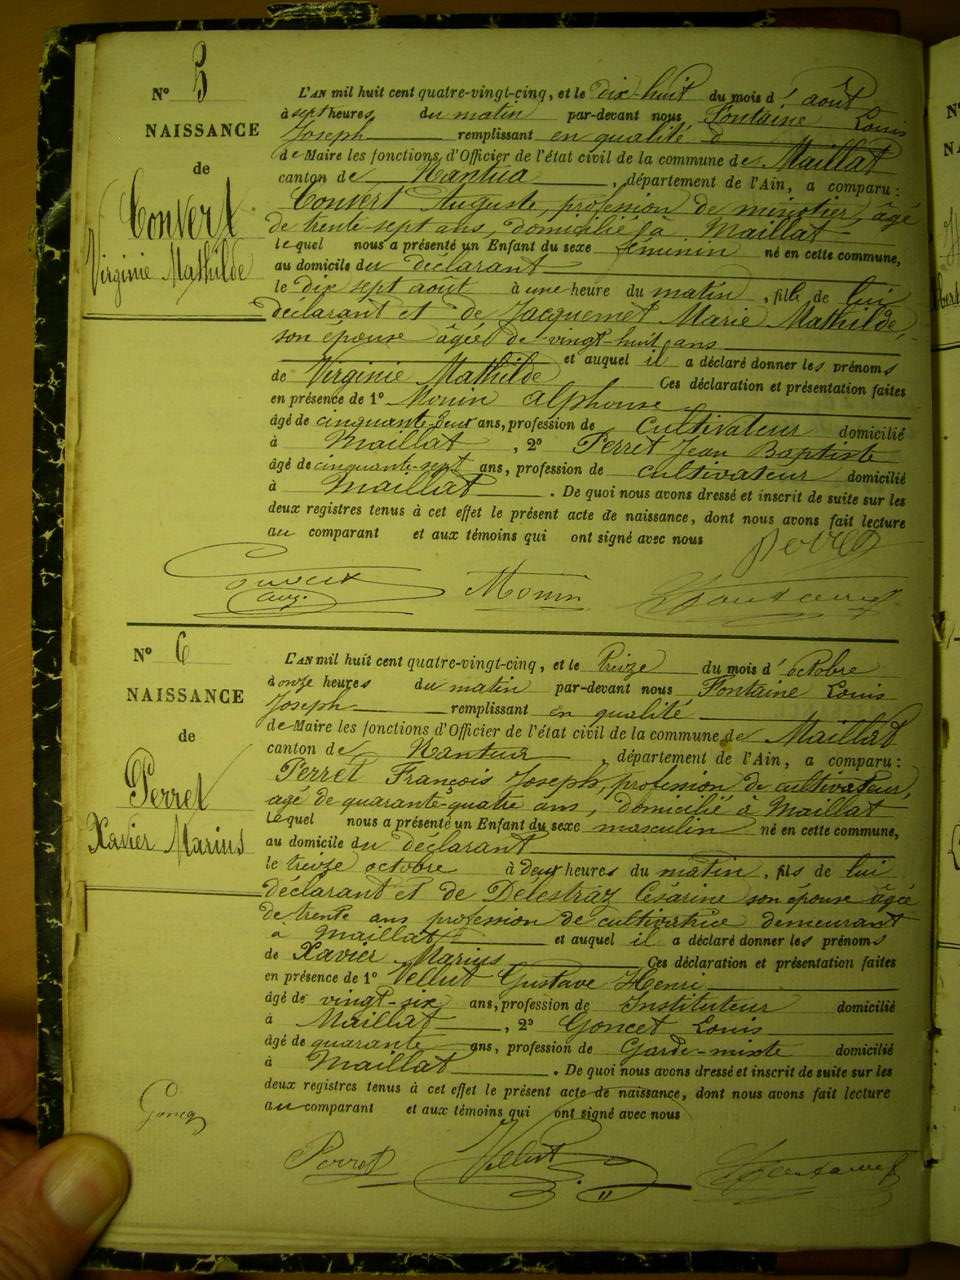 N° 5
NAISSANCE
de
Convert
Virginie Mathilde
L'AN mil huit cent quatre-vingt-cinq, et le Dix-huit du mois d'août
à sept heures du matin par-devant nous Fontaine Louis
Joseph remplissant en qualité d
de Maire les fonctions d'Officier de l'état civil de la commune de Maillat
canton de Nantua, département de l'Ain, a comparu :
Convert Auguste, profession de minotier, âgé
de trente-sept ans, domicilié à Maillat
lequel nous a présenté un Enfant du sexe féminin né en cette commune,
au domicile du déclarant
le dix sept août à une heure du matin, fille de lui
déclarant et de Jacquemet Marie Mathilde,
son épouse âgée de vingt-huit ans
et auquel il a déclaré donner les prénoms
de Virginie Mathilde Ces déclaration et présentation faites
en présence de 1° Monin Alphonse
âgé de cinquante-deux ans, profession de Cultivateur domicilié
à Maillat, 2° Perret Jean Baptiste
âgé de cinquante-sept ans, profession de cultivateur domicilié
à Maillat. De quoi nous avons dressé et inscrit de suite sur les
deux registres tenus à cet effet le présent acte de naissance, dont nous avons fait lecture
au comparant et aux témoins qui ont signé avec nous
Perret
Convert
Aug. Monin Fontaine
N° 6
NAISSANCE
de
Perret
Xavier Marius
L'AN mil huit cent quatre-vingt-cinq, et le treize du mois d'octobre
à onze heures du matin par-devant nous Fontaine Louis
Joseph remplissant en qualité
de Maire les fonctions d'Officier de l'état civil de la commune de Maillat
canton de Nantua, département de l'Ain, a comparu :
Perret François Joseph, profession de cultivateur,
agé de quarante-quatre ans, domicilié à Maillat
Lequel nous a présenté un Enfant du sexe masculin né en cette commune,
au domicile du déclarant
le treize octobre à deux heures du matin, fils de lui
déclarant et de Delestraz Césarine son épouse âgée
de trente ans profession de cultivatrice demeurant
à Maillat et auquel il a déclaré donner les prénoms
de Xavier Marius Ces déclaration et présentation faites
en présence de 1° Vellut Gustave Henri
âgé de vingt-six ans, profession de Instituteur domicilié
à Maillat, 2° Goncet Louis
âgé de quarante ans, profession de Garde-mixte domicilié
à Maillat. De quoi nous avons dressé et inscrit de suite sur les
deux registres tenus à cet effet le présent acte de naissance, dont nous avons fait lecture
au comparant et aux témoins qui ont signé avec nous
Perret Vellut Fontaine